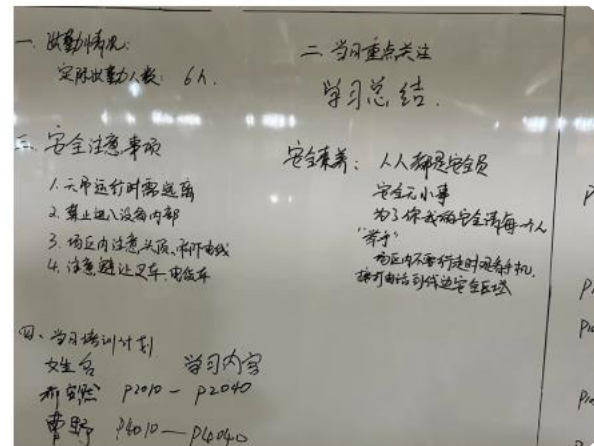 一、出勤情况:
实际出勤人数: 6人.
二、当日重点关注
学习总结.
三、安全注意事项
1. 天吊运行时需远离
2. 禁止进入设备内部
3. 场区内注意头顶、脚下曲线
4. 注意避让叉车、电瓶车
安全素养: 人人都是安全员
安全无小事
为了你我的安全请每一个人
"举手"
场区内不要行走时观看手机,
接打电话到伐边安全区域
四、当日培训计划
姓名 学习内容
P2010 — P2040
曹野 P4010 — P4040